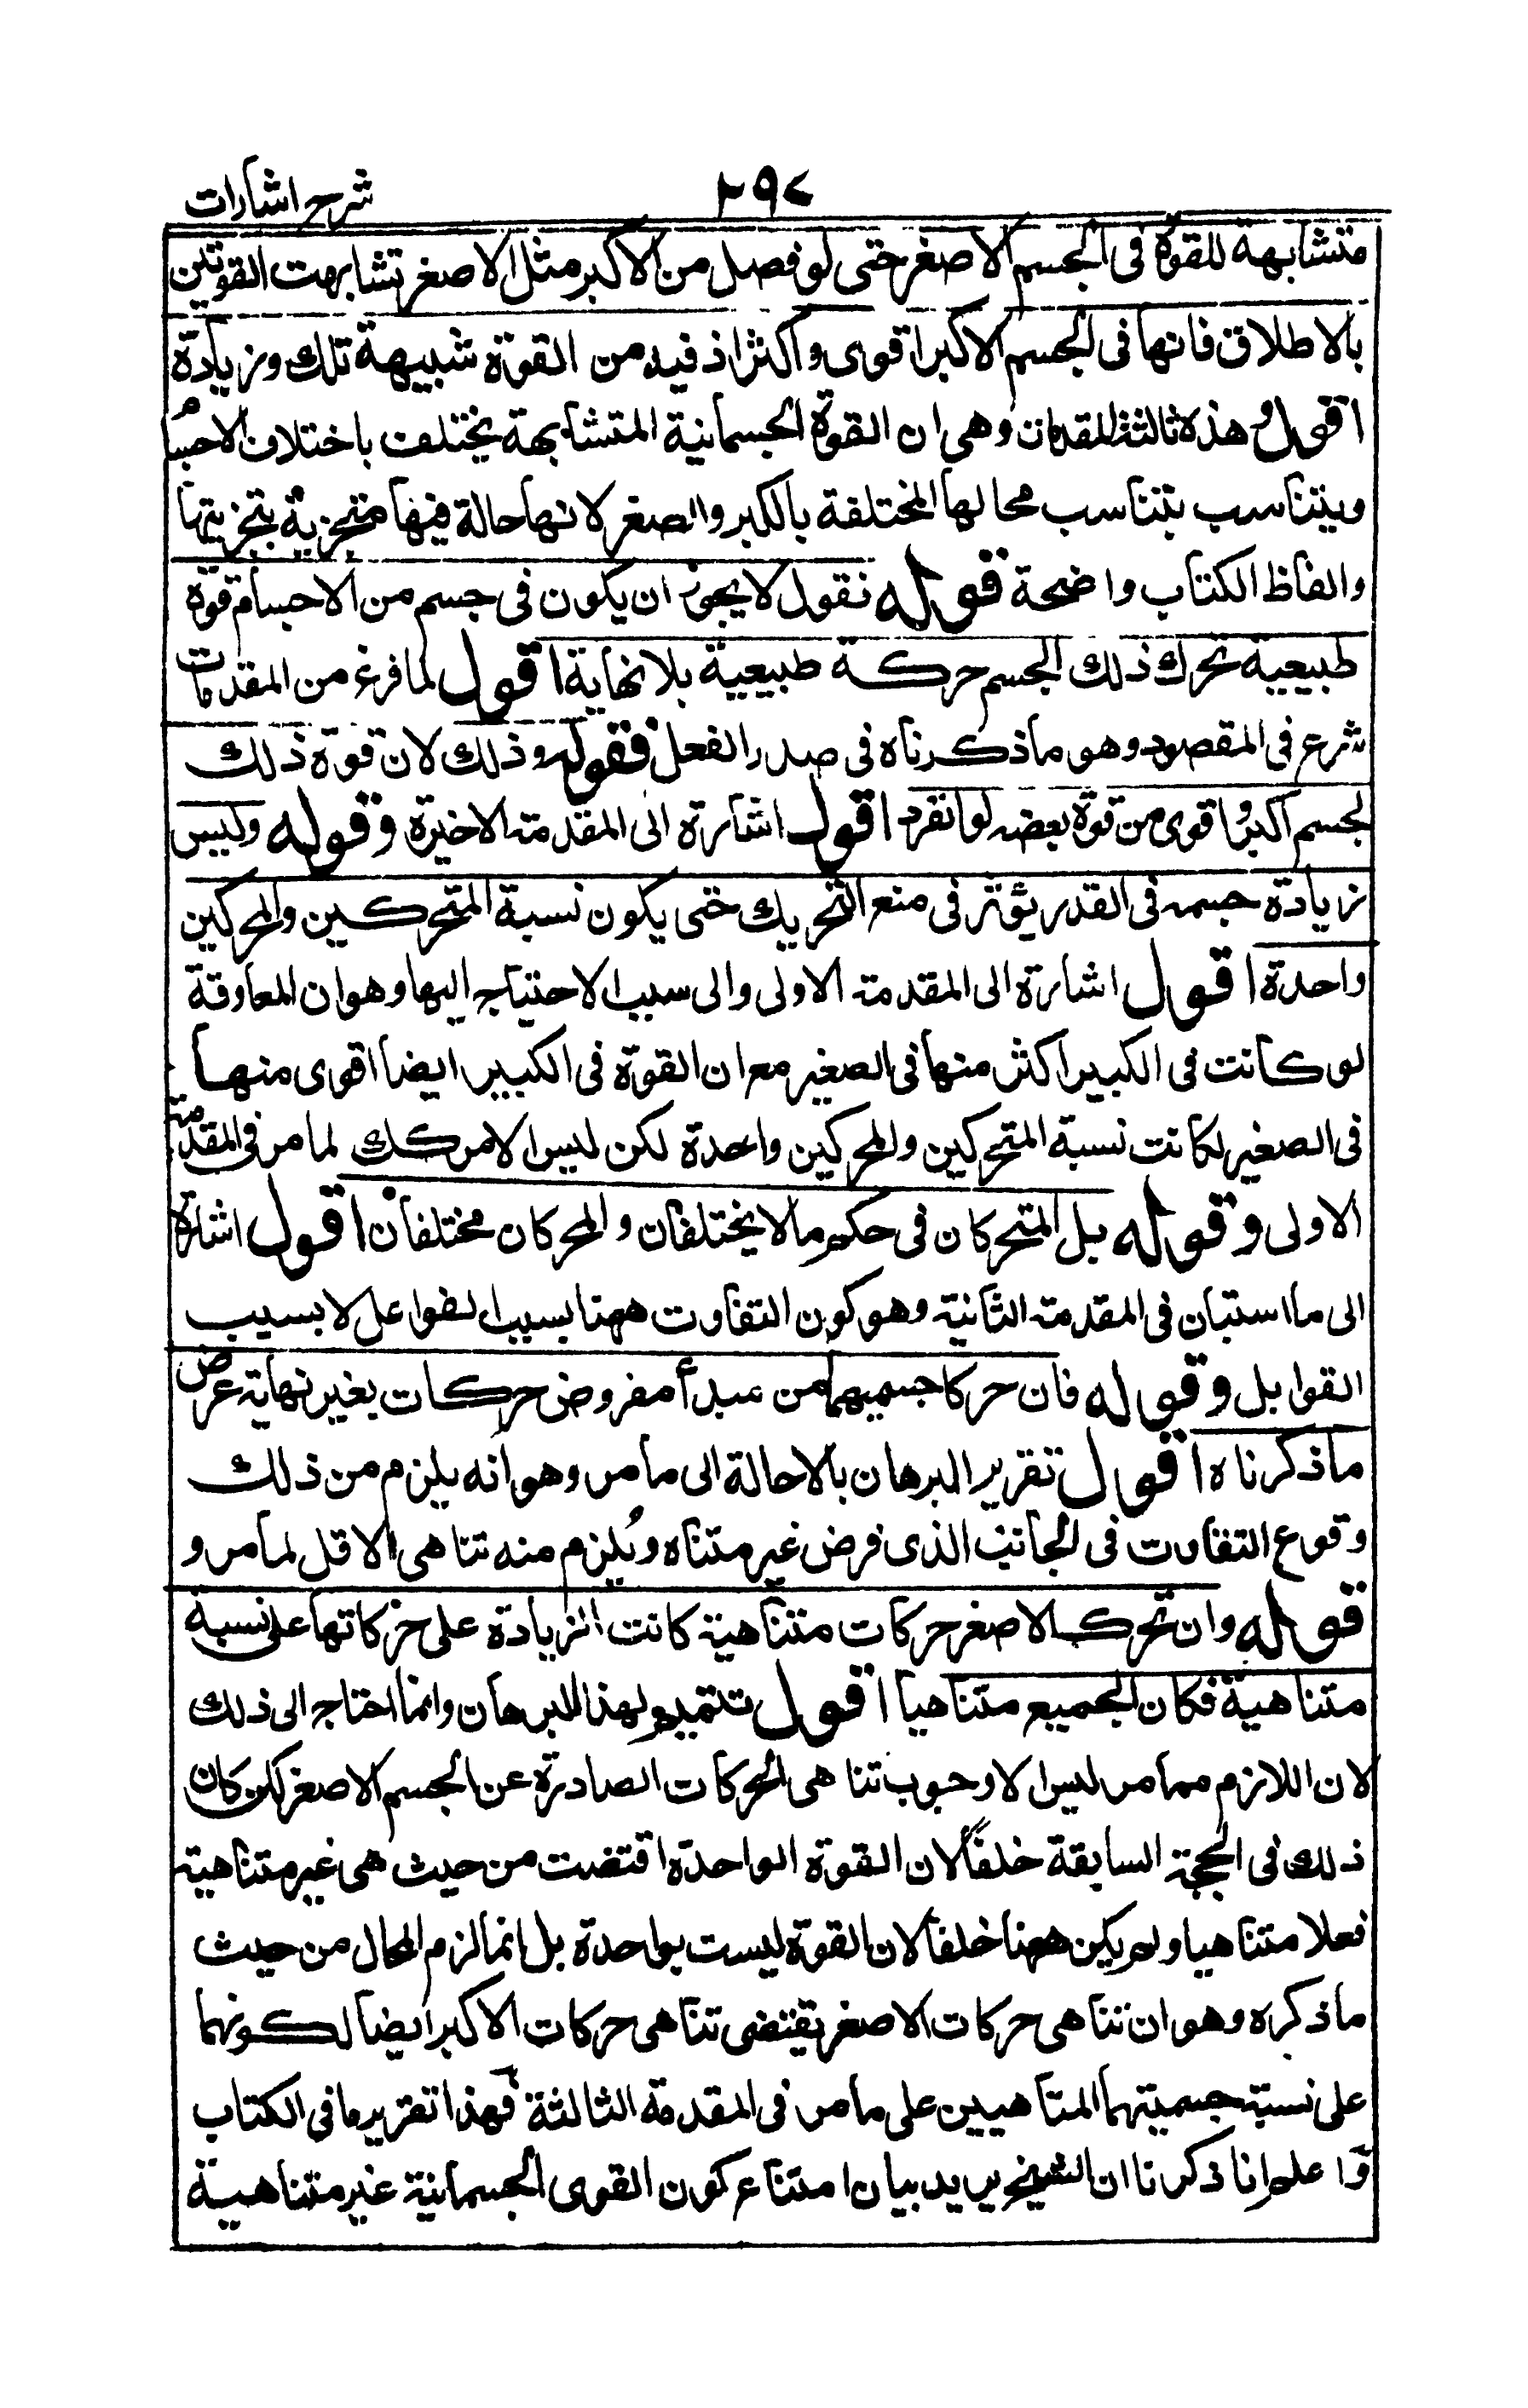 شرح اشارات
٢٩٧
متشابهة للقوة فى الجسم الاصغر حتى لو فصل من الاكبر مثل الاصغر تشابهت القوتين
بالاطلاق فانها فى الجسم الاكبر اقوى واكثر اذ فيه من القوة شبيهة تلك وزيادة
اقول وهذه ثالثة المقدمات وهى ان القوة الجسمانية المتشابهة يختلف باختلاف الاجسام
ويتناسب بتناسب محالها المختلفة بالكبر والصغر لانها حالة فيها متجزية بتجزيتها
والفاظ الكتاب واضحة قوله نقول لا يجوز ان يكون فى جسم من الاجسام قوة
طبيعية تحرك ذلك الجسم حركة طبيعية بلا نهاية اقول لما فرغ من المقدمات
شرع فى المقصود وهو ما ذكرناه فى صدر الفصل فقوله وذلك لان قوة ذلك
لجسم اكبر اقوى من قوة بعضه لو انفرد اقول اشارة الى المقدمة الاخيرة وقوله وليس
زيادة جسمه فى القدر يؤثر فى منع التحريك حتى يكون نسبة المتحركين والمحركين
واحدة اقول اشارة الى المقدمة الاولى والى سبب الاحتياج اليها وهو ان المعاوقة
لو كانت فى الكبير اكثر منها فى الصغير مع ان القوة فى الكبير ايضا اقوى منها
فى الصغير لكانت نسبة المتحركين والمحركين واحدة لكن ليس الامر كك لما مر فى المقدمة
الاولى وقوله بل المتحركان فى حكم ما لا يختلفان والمحركان مختلفان اقول اشارة
الى ما استبان فى المقدمة الثانية وهو كون التفاوت ههنا بسبب الفواعل لا بسبب
القوابل وقوله فان حركا جسميهما من مبدأ مفروض حركات بغير نهاية عرض
ما ذكرناه اقول تقرير البرهان بالاحالة الى ما مر وهو انه يلزم من ذلك
وقوع التفاوت فى الجانب الذى فرض غير متناه ويلزم منه تناهى الاقل لما مر و
قوله وان تحرك الاصغر حركات متناهية كانت الزيادة على حركاتها على نسبة
متناهية فكان الجميع متناهيا اقول تتميم لهذا البرهان وانما احتاج الى ذلك
لان اللازم مما مر ليس الا وجوب تناهى الحركات الصادرة عن الجسم الاصغر لكن كان
ذلك فى الحجة السابقة خلفا لان القوة الواحدة اقتضت من حيث هى غير متناهية
فعلا متناهيا ولم يكن ههنا خلفا لان القوة ليست بواحدة بل انما لزم المحال من حيث
ما ذكره وهو ان تناهى حركات الاصغر يقتضى تناهى حركات الاكبر ايضا لكونهما
على نسبة جسميتهما المتناهيين على ما مر فى المقدمة الثالثة فهذا تقرير ما فى الكتاب
واعلم انا ذكرنا ان الشيخ يريد بيان امتناع كون القوى الجسمانية غير متناهية